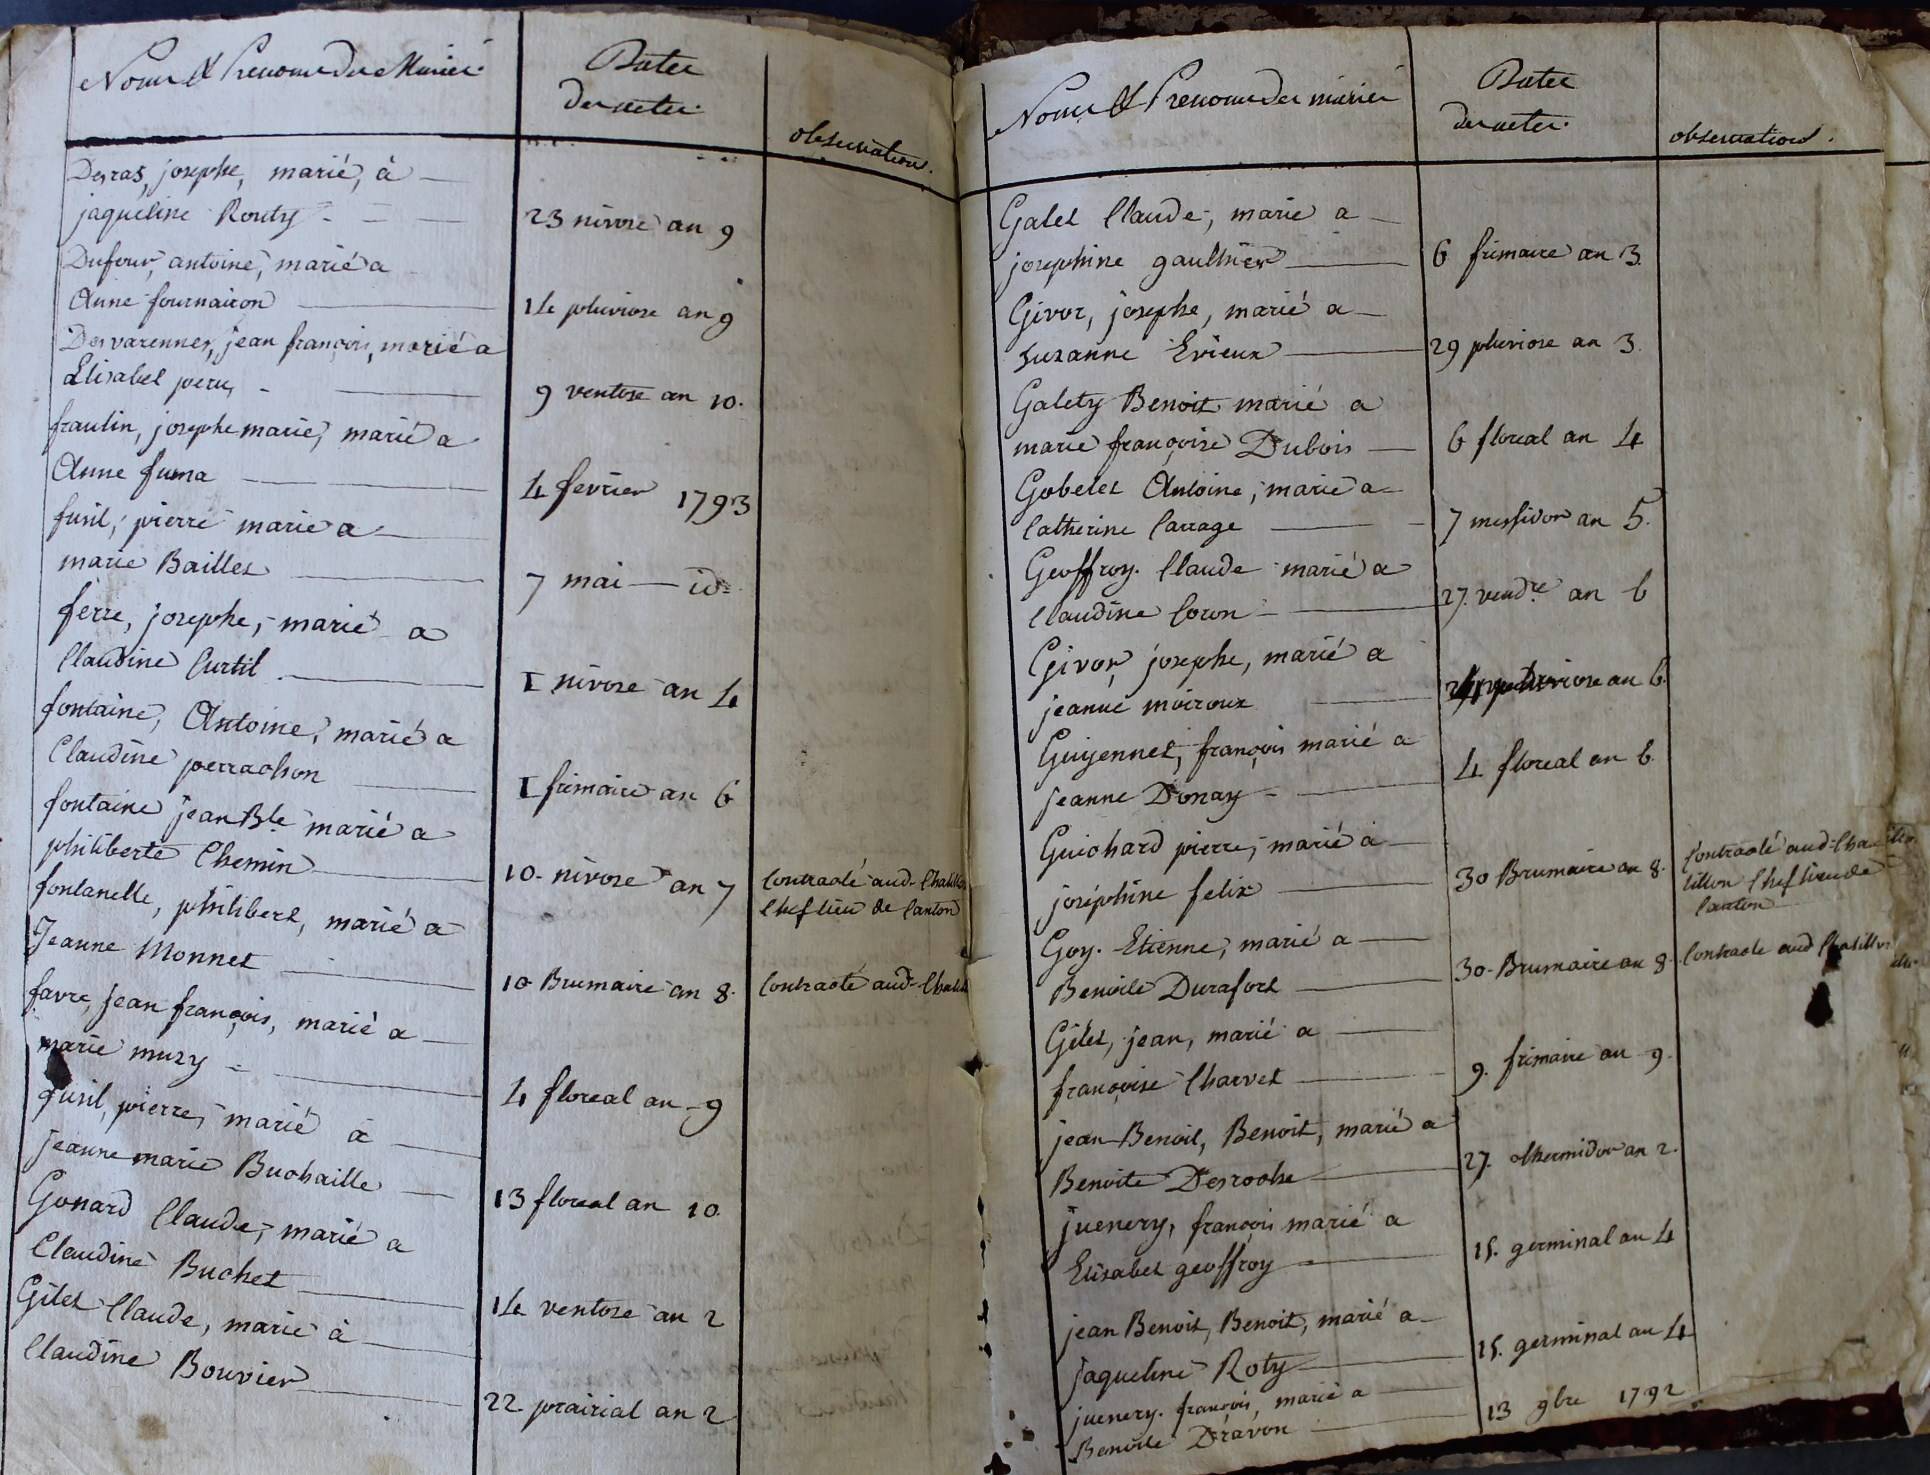 Noms & Prenoms des Mariés
Dates
des actes.
observations.
Desras, josephe, marié, à
jaqueline Routy
23 nivose an 9
Dufour, antoine, marié a
Anne fournairon
14 pluviose an 9
Desvarennes, jean françois, marié a
Elisabet peru
9 ventose an 10.
fraulin, josephe marie, marié a
Anne fuma
4 fevrier 1793
fusil, pierre marié a
marie Baillet
7 mai — id=
ferre, josephe, marié a
Claudine Curtil
I nivose an 4
fontaine, Antoine, marié a
Claudine perrachon
I frimaire an 6
fontaine jean Bte marié a
philiberte Chemin
10. nivose an 7
Contracté aud. Chatillon
Chef lieu de Canton
fontanelle, philibert, marié a
Jeanne Monnet
10 Brumaire an 8.
Contracté aud.
favre, jean françois, marié a
marie muzy
4 floreal an 9
fusil, pierre, marié à
jeanne marie Buchaille
13 floreal an 10.
Gonard Claude, marié a
Claudine Buchet
14 ventose an 2
Gilet Claude, marié à
Claudine Bouvier
22. prairial an 2
Noms & Prenoms des mariés
Dates
des actes.
observations.
Galet Claude, marié a
josephine gaulthier
6 frimaire an 3.
Givor, josephe, marié a
suzanne Evieux
29 pluviose an 3.
Galety Benoit marié a
marie françoise Dubois
6 floreal an 4
Gobelet Antoine, marié a
Catherine Carrage
7 messidor an 5.
Geoffroy. Claude marié a
Claudine Coron
27. vendre an 6
Givor, josephe, marié a
jeanne moiroux
pluviose an 6.
Guyennet, françois marié a
jeanne Donay
4 floreal an 6.
Guichard pierre, marié à
joséphine felix
30 Brumaire an 8.
Contracté aud. Cha
tillon Chef lieu de
Canton
Goy. Etienne, marié a
Benoite Durafort
30. Brumaire an 8.
Contracté aud Chatillon
Gilet, jean, marié a
françoise Charvet
9. frimaire an 9.
jean Benoit, Benoit, marié a
Benoite Desroche
27. thermidor an 2.
juenery, françois marié a
Elisabet geoffroy
15. germinal an 4
jean Benoit, Benoit, marié a
jaqueline Roty
15. germinal an 4
juenery. françois, marié a
Benoite Dravon
13 9bre 1792